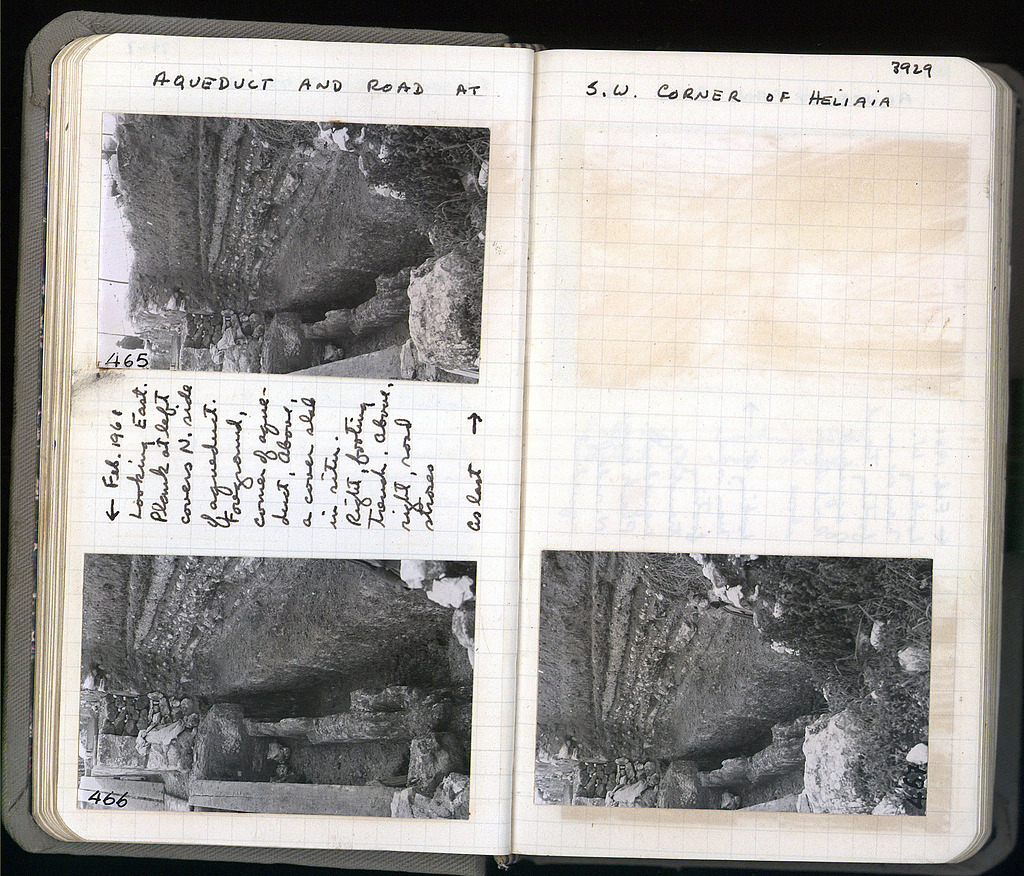 3929
AQUEDUCT AND ROAD AT S.W. CORNER OF HELIAIA
465
← Feb. 1961
Looking East.
Plank at left
covers N. side
of aqueduct.
Foreground,
corner of aque-
duct. Above,
a cover slab
in situ.
Right, footing
trench. Above,
right, road
strosES
as last →
466